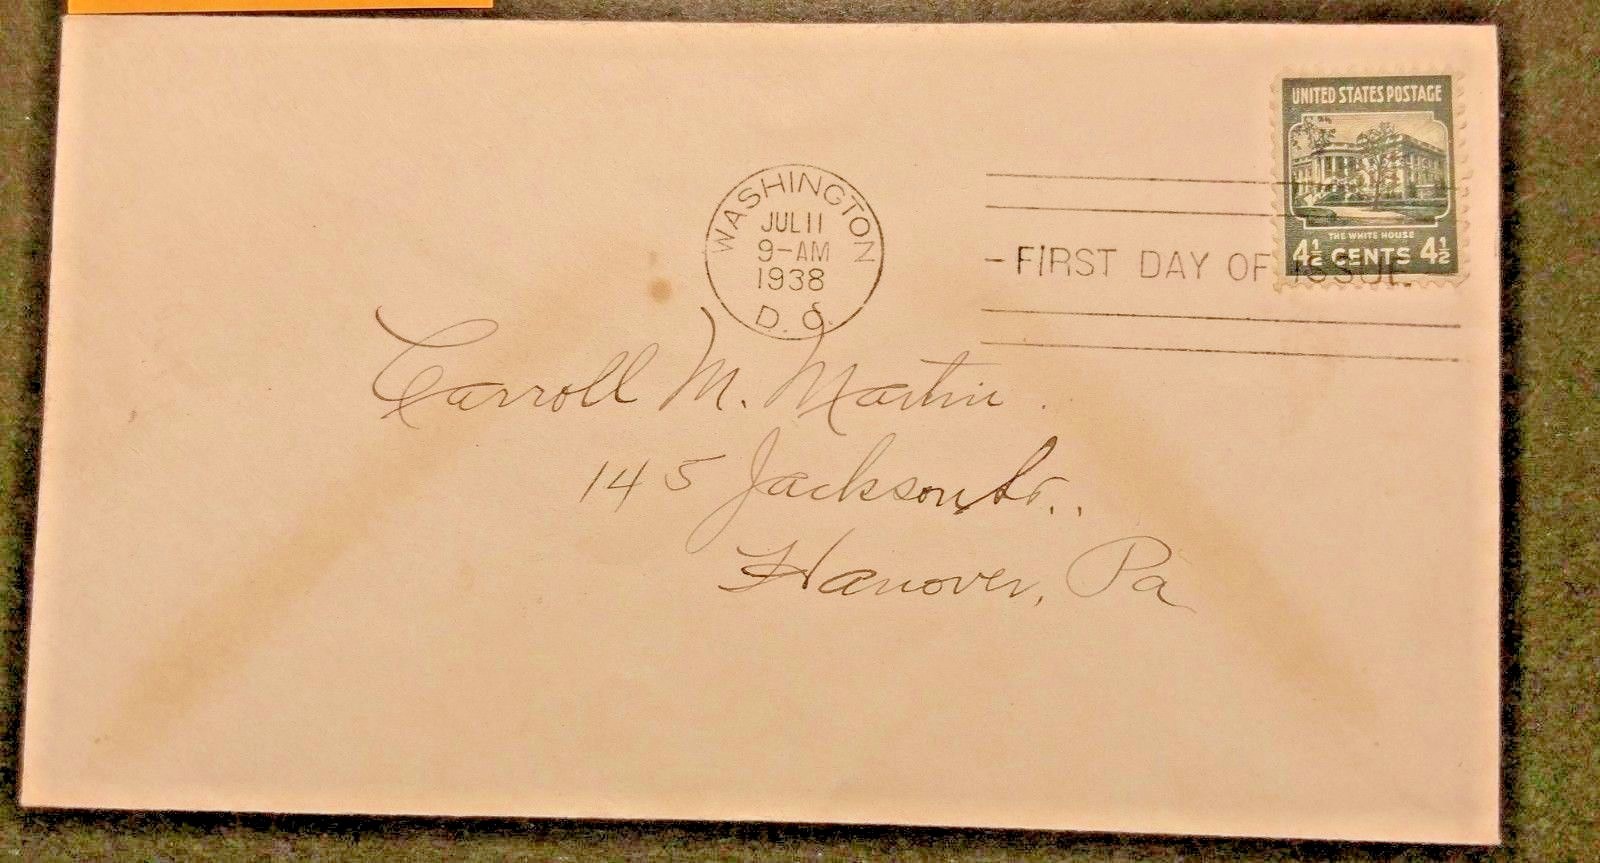 UNITED STATES POSTAGE
THE WHITE HOUSE
4½ CENTS 4½
WASHINGTON
JUL 11
9-AM
1938
D. C.
FIRST DAY OF ISSUE
Carroll M. Martin
145 Jackson St.
Hanover, Pa